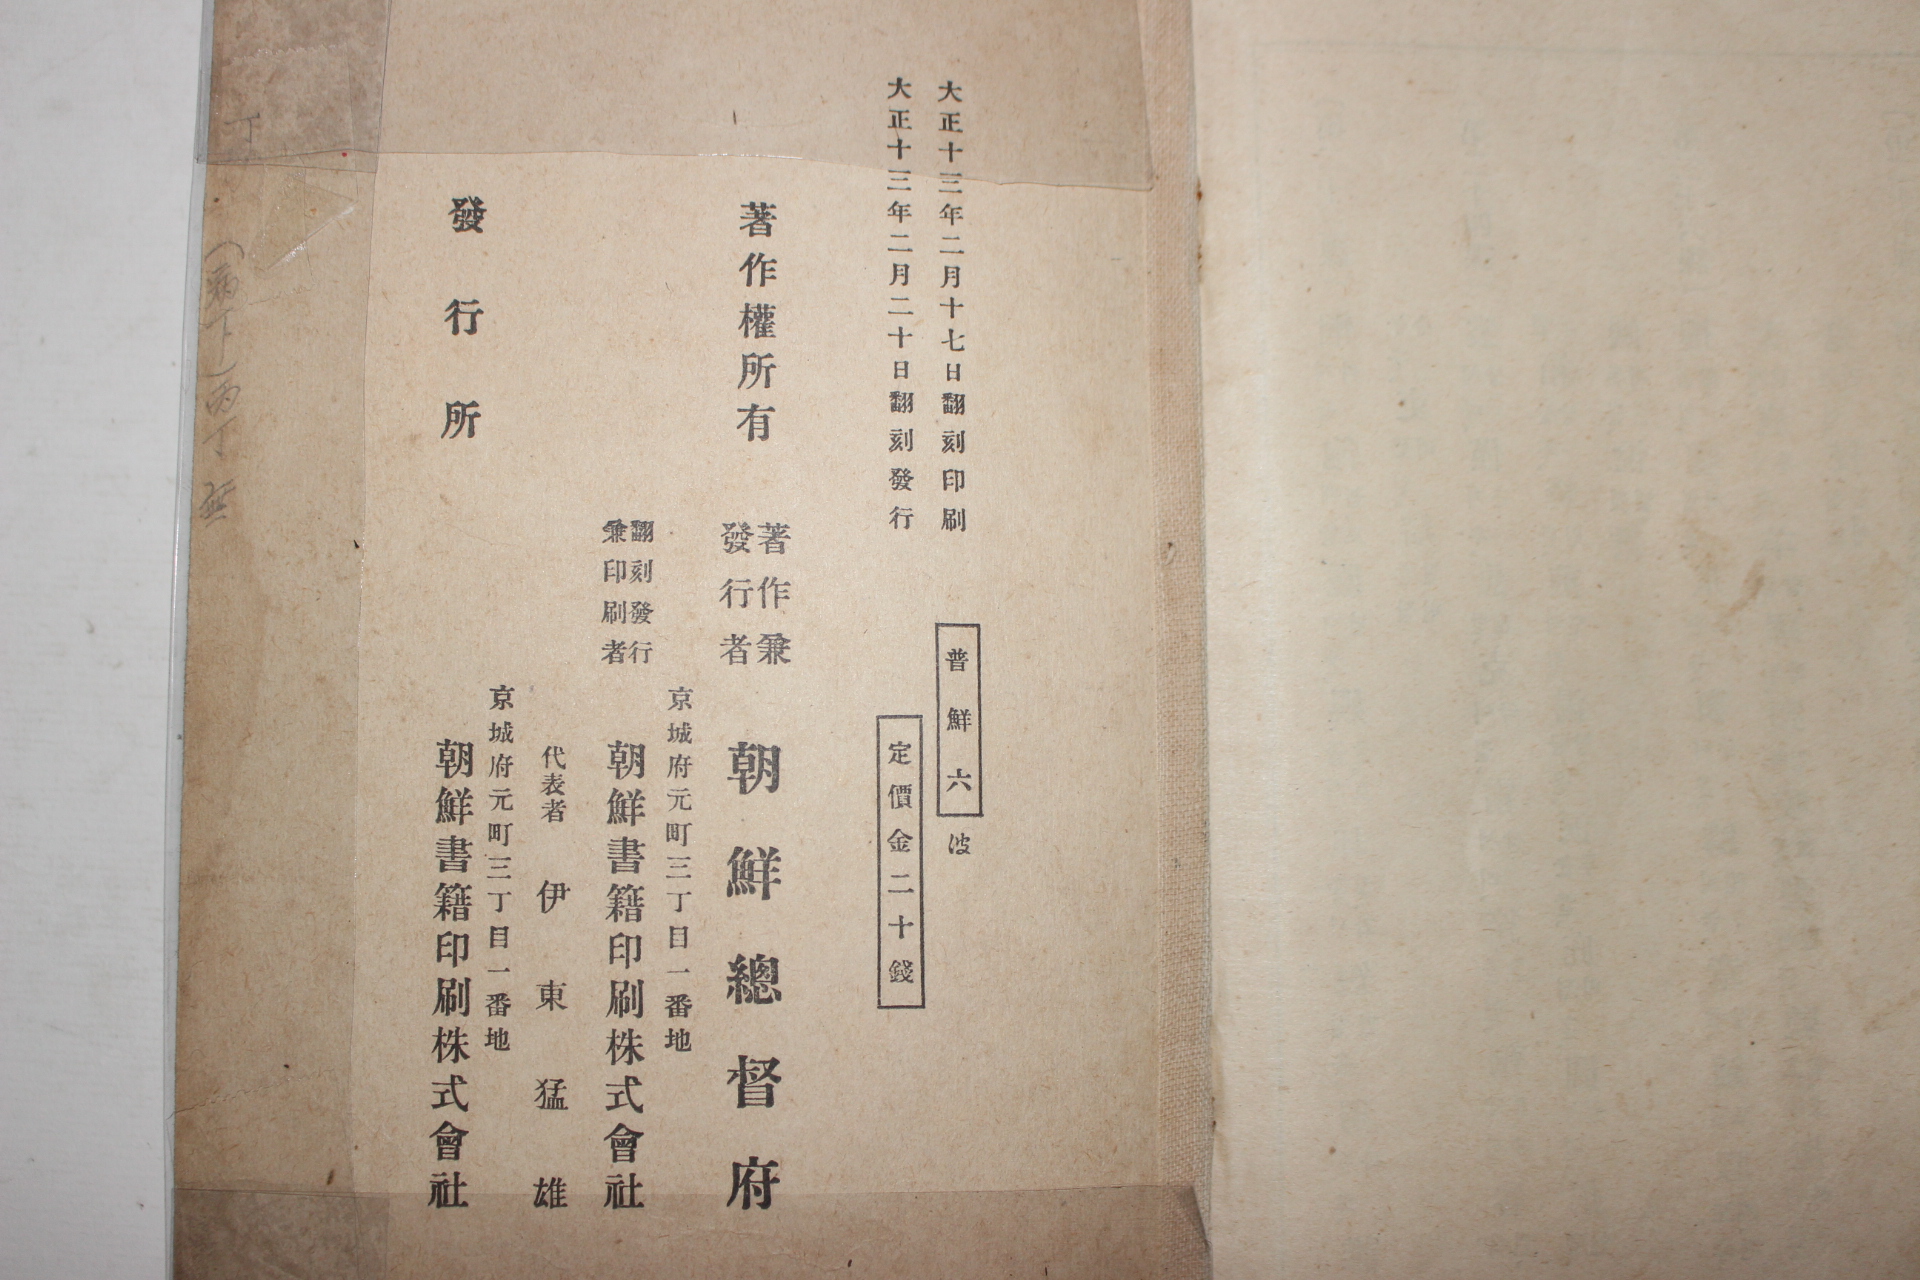 大正十三年二月十七日翻刻印刷
大正十三年二月二十日翻刻發行
普鮮六
波
定價金二十錢
著作權所有
著作兼
發行者
朝鮮總督府
京城府元町三丁目一番地
翻刻發行
兼印刷者
朝鮮書籍印刷株式會社
代表者 伊東猛雄
京城府元町三丁目一番地
發行所
朝鮮書籍印刷株式會社
丁
丙丁